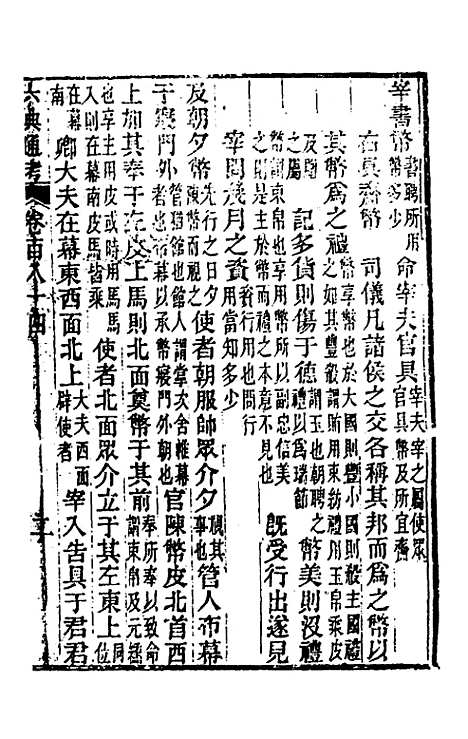 宰書幣書聘所用幣多少命宰夫官具宰夫宰之屬使眾官具幣及所宜齎
右具齎幣　司儀凡諸侯之交各稱其邦而爲之幣以
其幣爲之禮幣享幣也於大國則豐小國則殺主國禮之如其豐殺謂賄用束紡禮用玉帛乘皮
及贈之屬　記多貨則傷于德謂玉也朝聘之禮以爲瑞節幣美則沒禮
謂束帛也享用幣所以副忠信美之則是主於幣而禮之本意不見也　旣受行出遂見
宰問幾月之資資行用也問行用當知多少
及朝夕幣先行之日夕陳幣而視之使者朝服帥眾介夕視其事也管人布幕
于寢門外管猶館也館人謂掌次舍帷幕者也布幕以承幣寢門外朝也官陳幣皮北首西
上加其奉于左皮上馬則北面奠幣于其前奉所奉以致命謂束帛及元纁
也享主用皮或時用馬馬入則在幕南皮馬皆乘　使者北面眾介立于其左東上同位
在幕南　卿大夫在幕東西面北上大夫西面辟使者　宰入告具于君君
六典通考　卷百八十四